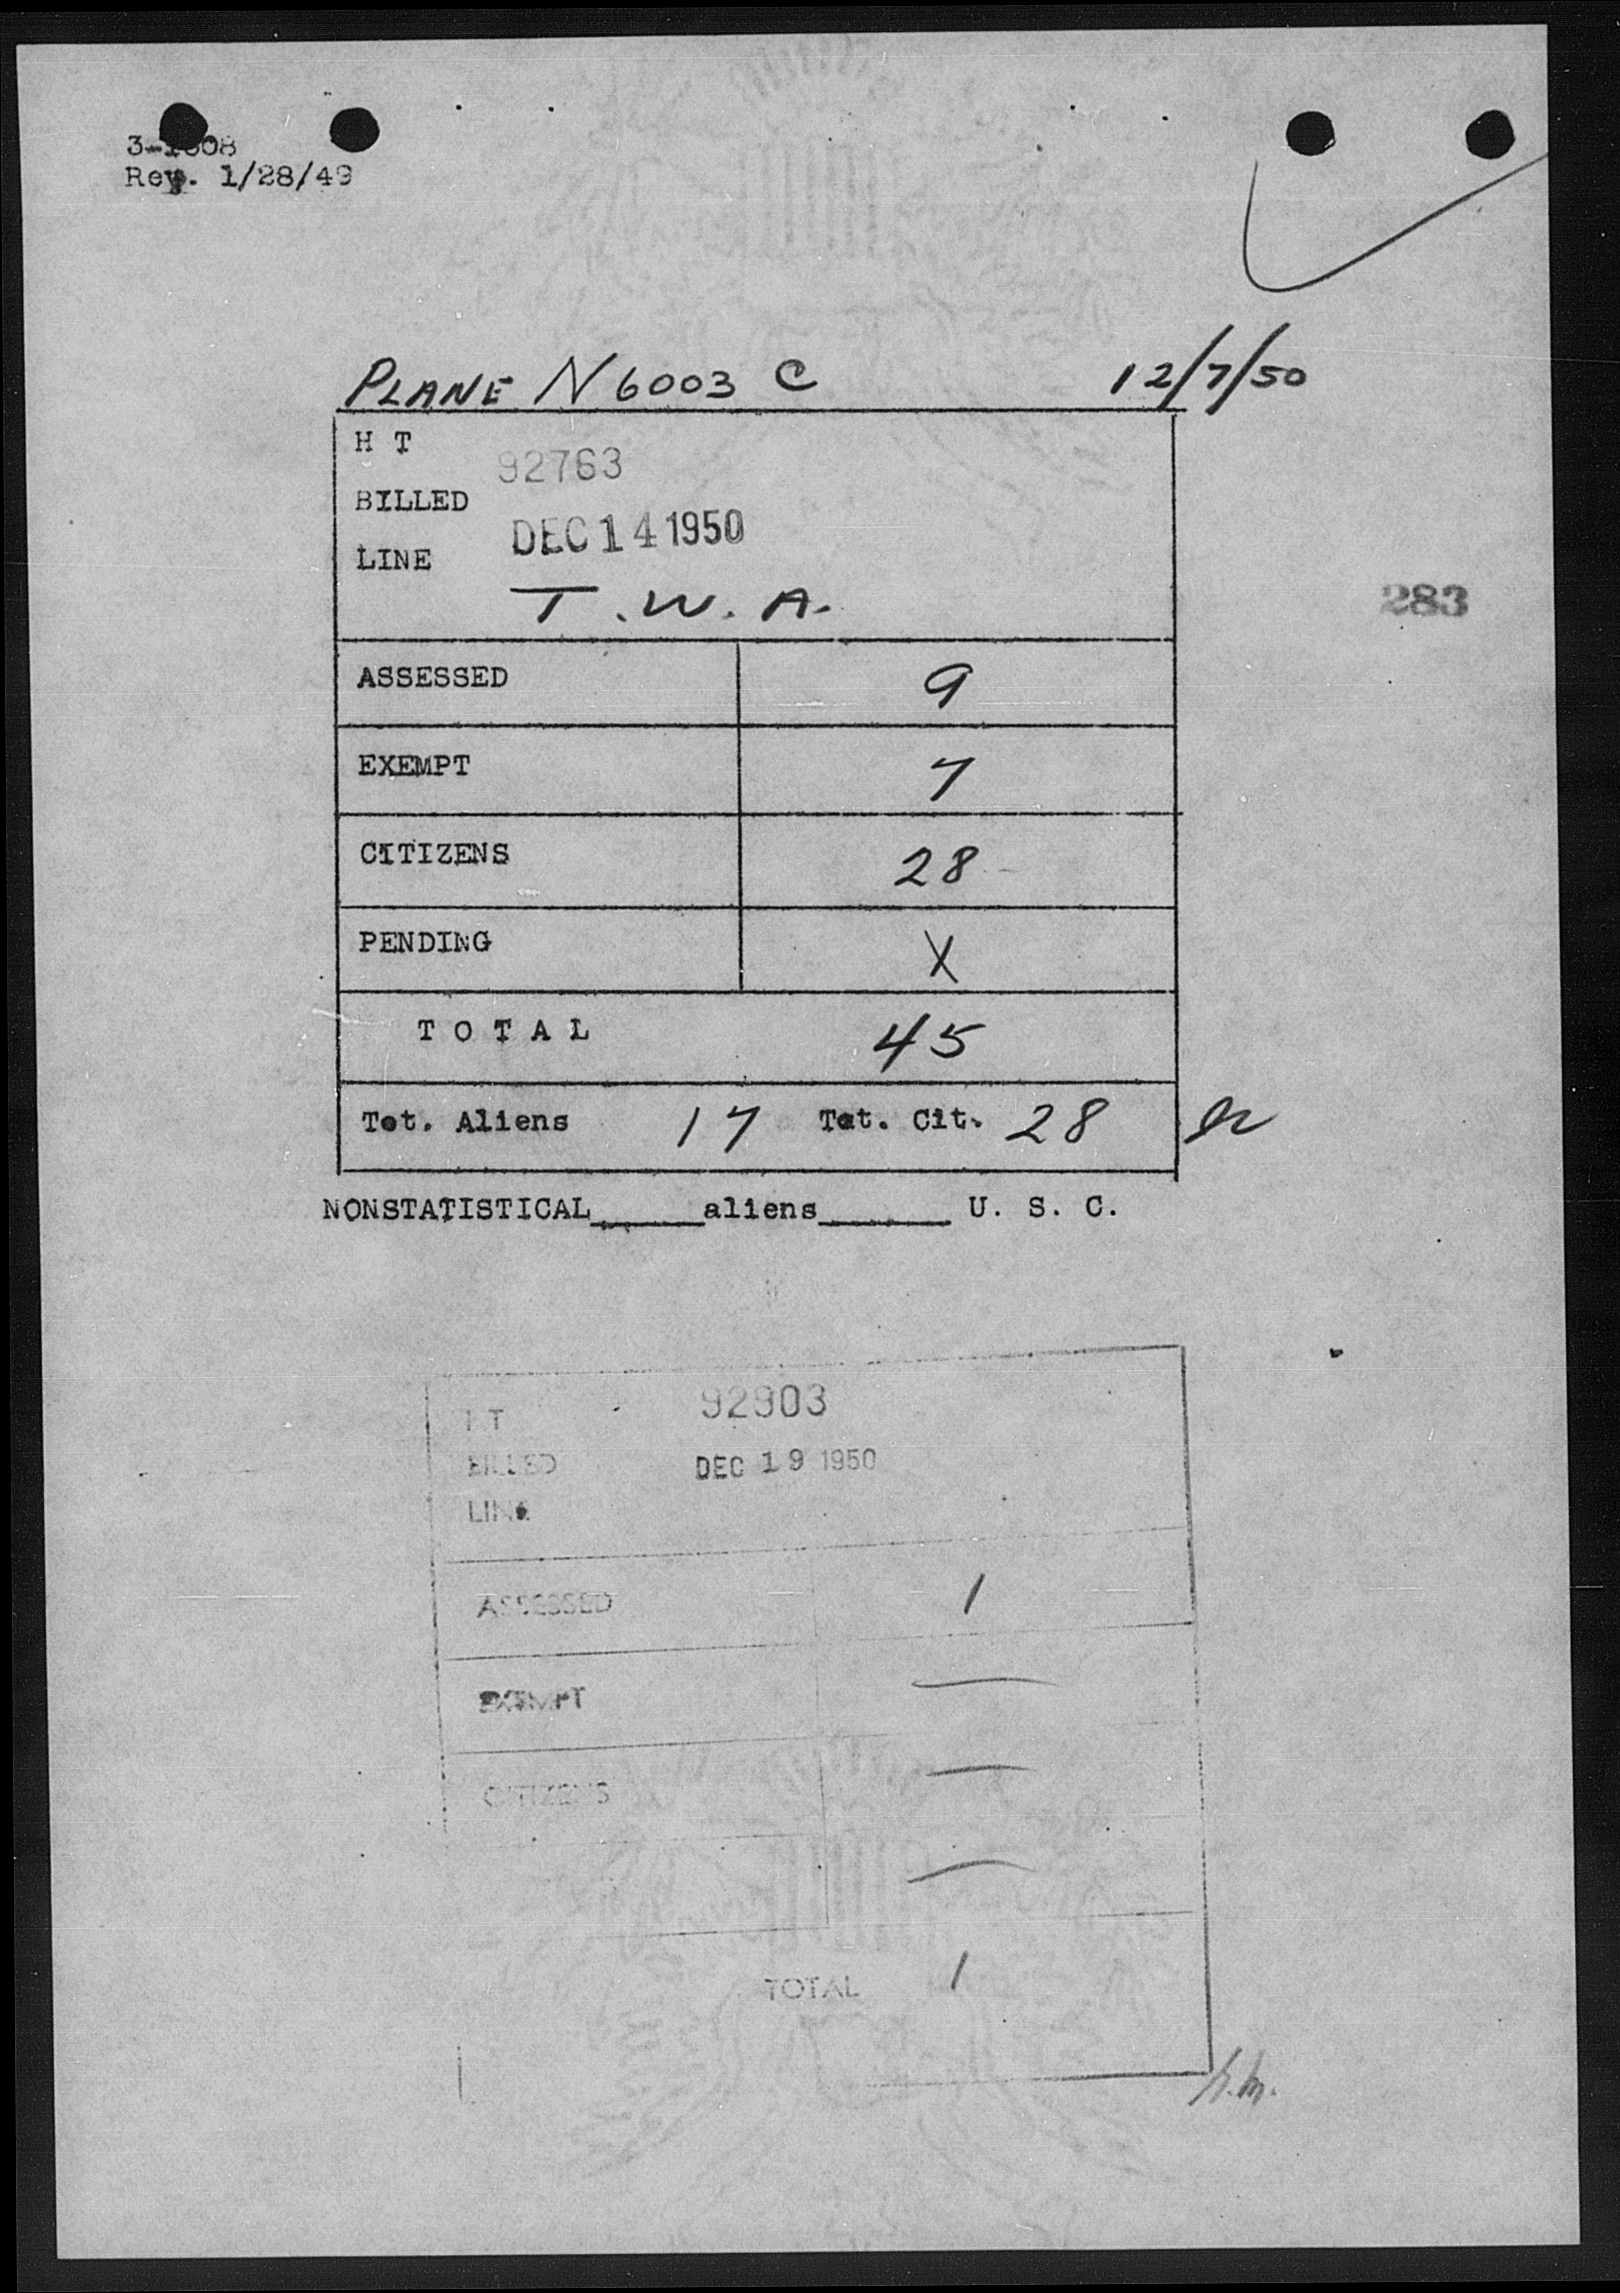 Rev. 1/28/49
PLANE N6003 C 12/7/50
H T 92763
BILLED
DEC 14 1950
LINE
T.W.A.
283
ASSESSED 9
EXEMPT 7
CITIZENS 28
PENDING X
TOTAL 45
Tot. Aliens 17 Tot. Cit. 28
NONSTATISTICAL______aliens_______ U. S. C.
H T 92903
BILLED DEC 19 1950
LINE
ASSESSED 1
EXEMPT —
CITIZENS —
—
TOTAL 1